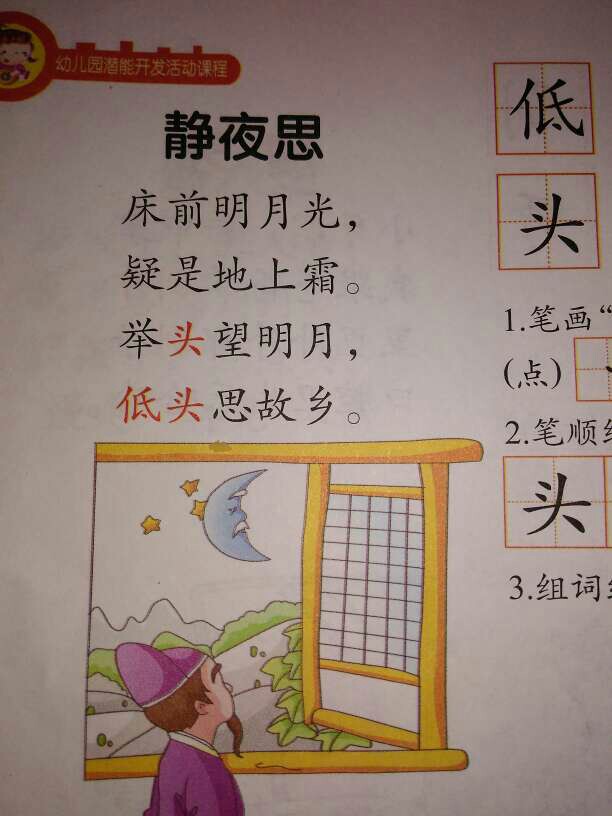 幼儿园潜能开发活动课程
静夜思
床前明月光，
疑是地上霜。
举头望明月，
低头思故乡。
低
头
1.笔画“
(点)
2.笔顺
头
3.组词